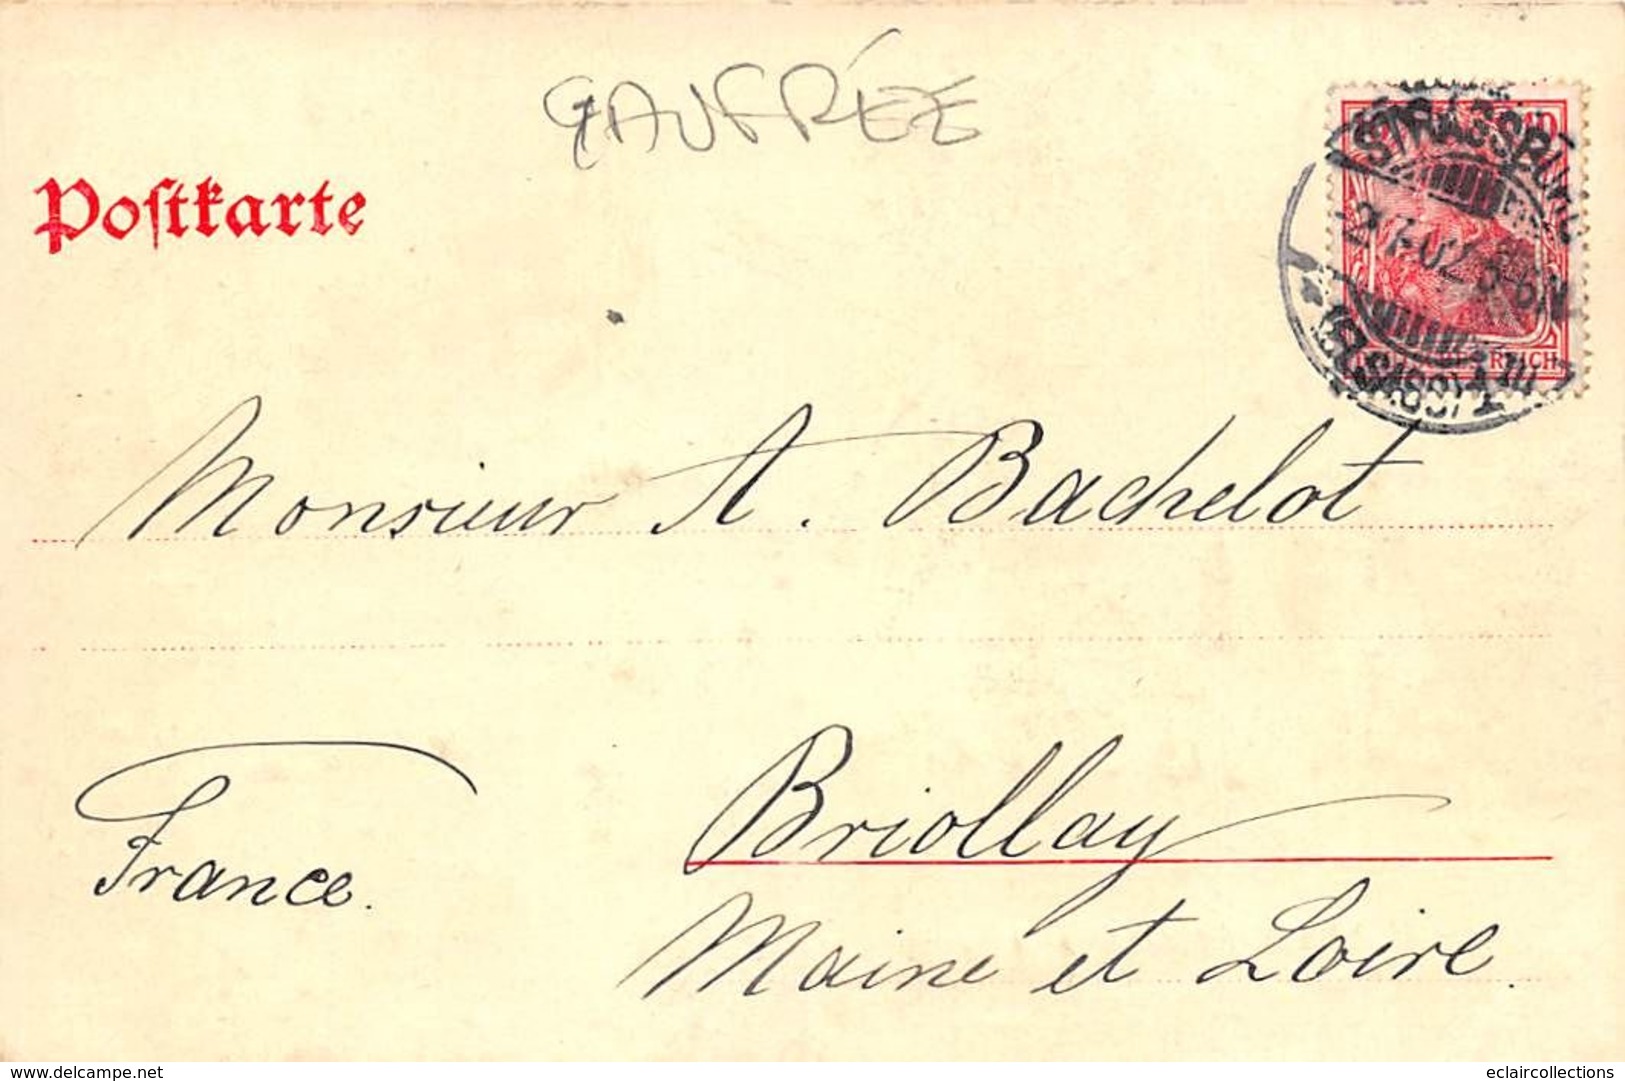 GAUFRÉE
Postkarte
STRASSBURG
(ELSASS)
REICH
Monsieur A. Bachelot
Briollay
France.
Maine et Loire.
www.delcampe.net
eclaircollections